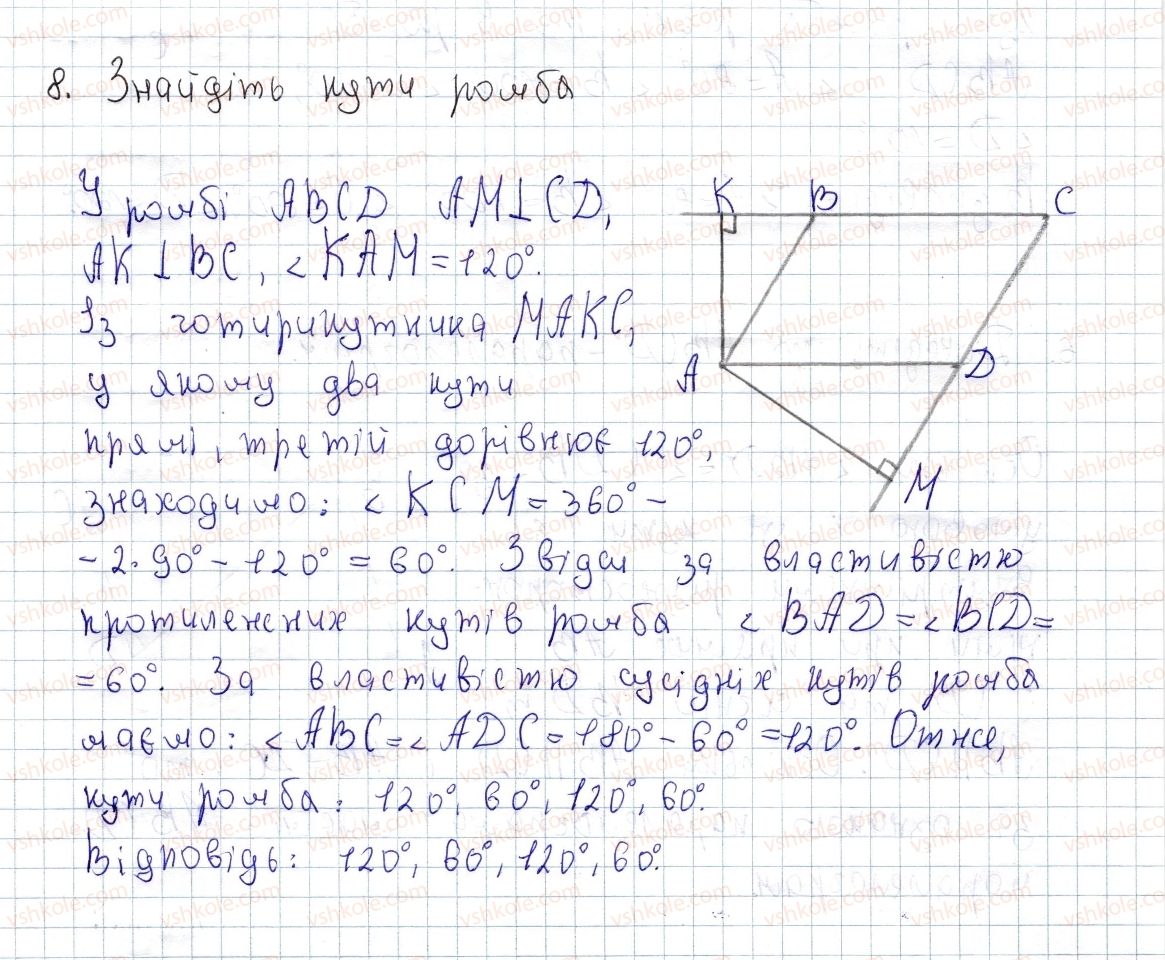 8. Знайдіть кути ромба
У ромбі ABCD AM⊥CD,
AK⊥BC, <KAM=120°.
Із чотирикутника MAKC,
у якому два кути
прямі, третій дорівнює 120°,
знаходимо: <KCM=360°-
-2·90°-120°=60°. Звідси за властивістю
протилежних кутів ромба <BAD=<BCD=
=60°. За властивістю сусідніх кутів ромба
маємо: <ABC=<ADC=180°-60°=120°. Отже,
кути ромба: 120°, 60°, 120°, 60°.
Відповідь: 120°, 60°, 120°, 60°.
K B C
A D
M
vshkole.com